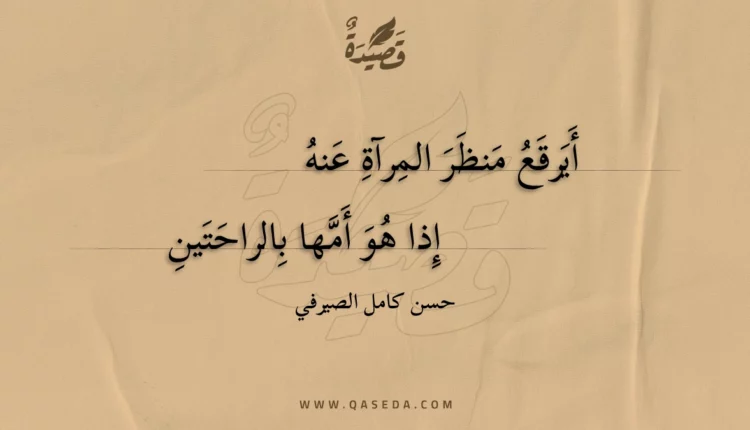 قَصِيْدَةٌ
أَيَرقَعُ مَنظَرَ المِرآةِ عَنهُ
إِذا هُوَ أَمَّها بِالراحَتَينِ
حسن كامل الصيرفي
WWW.QASEDA.COM